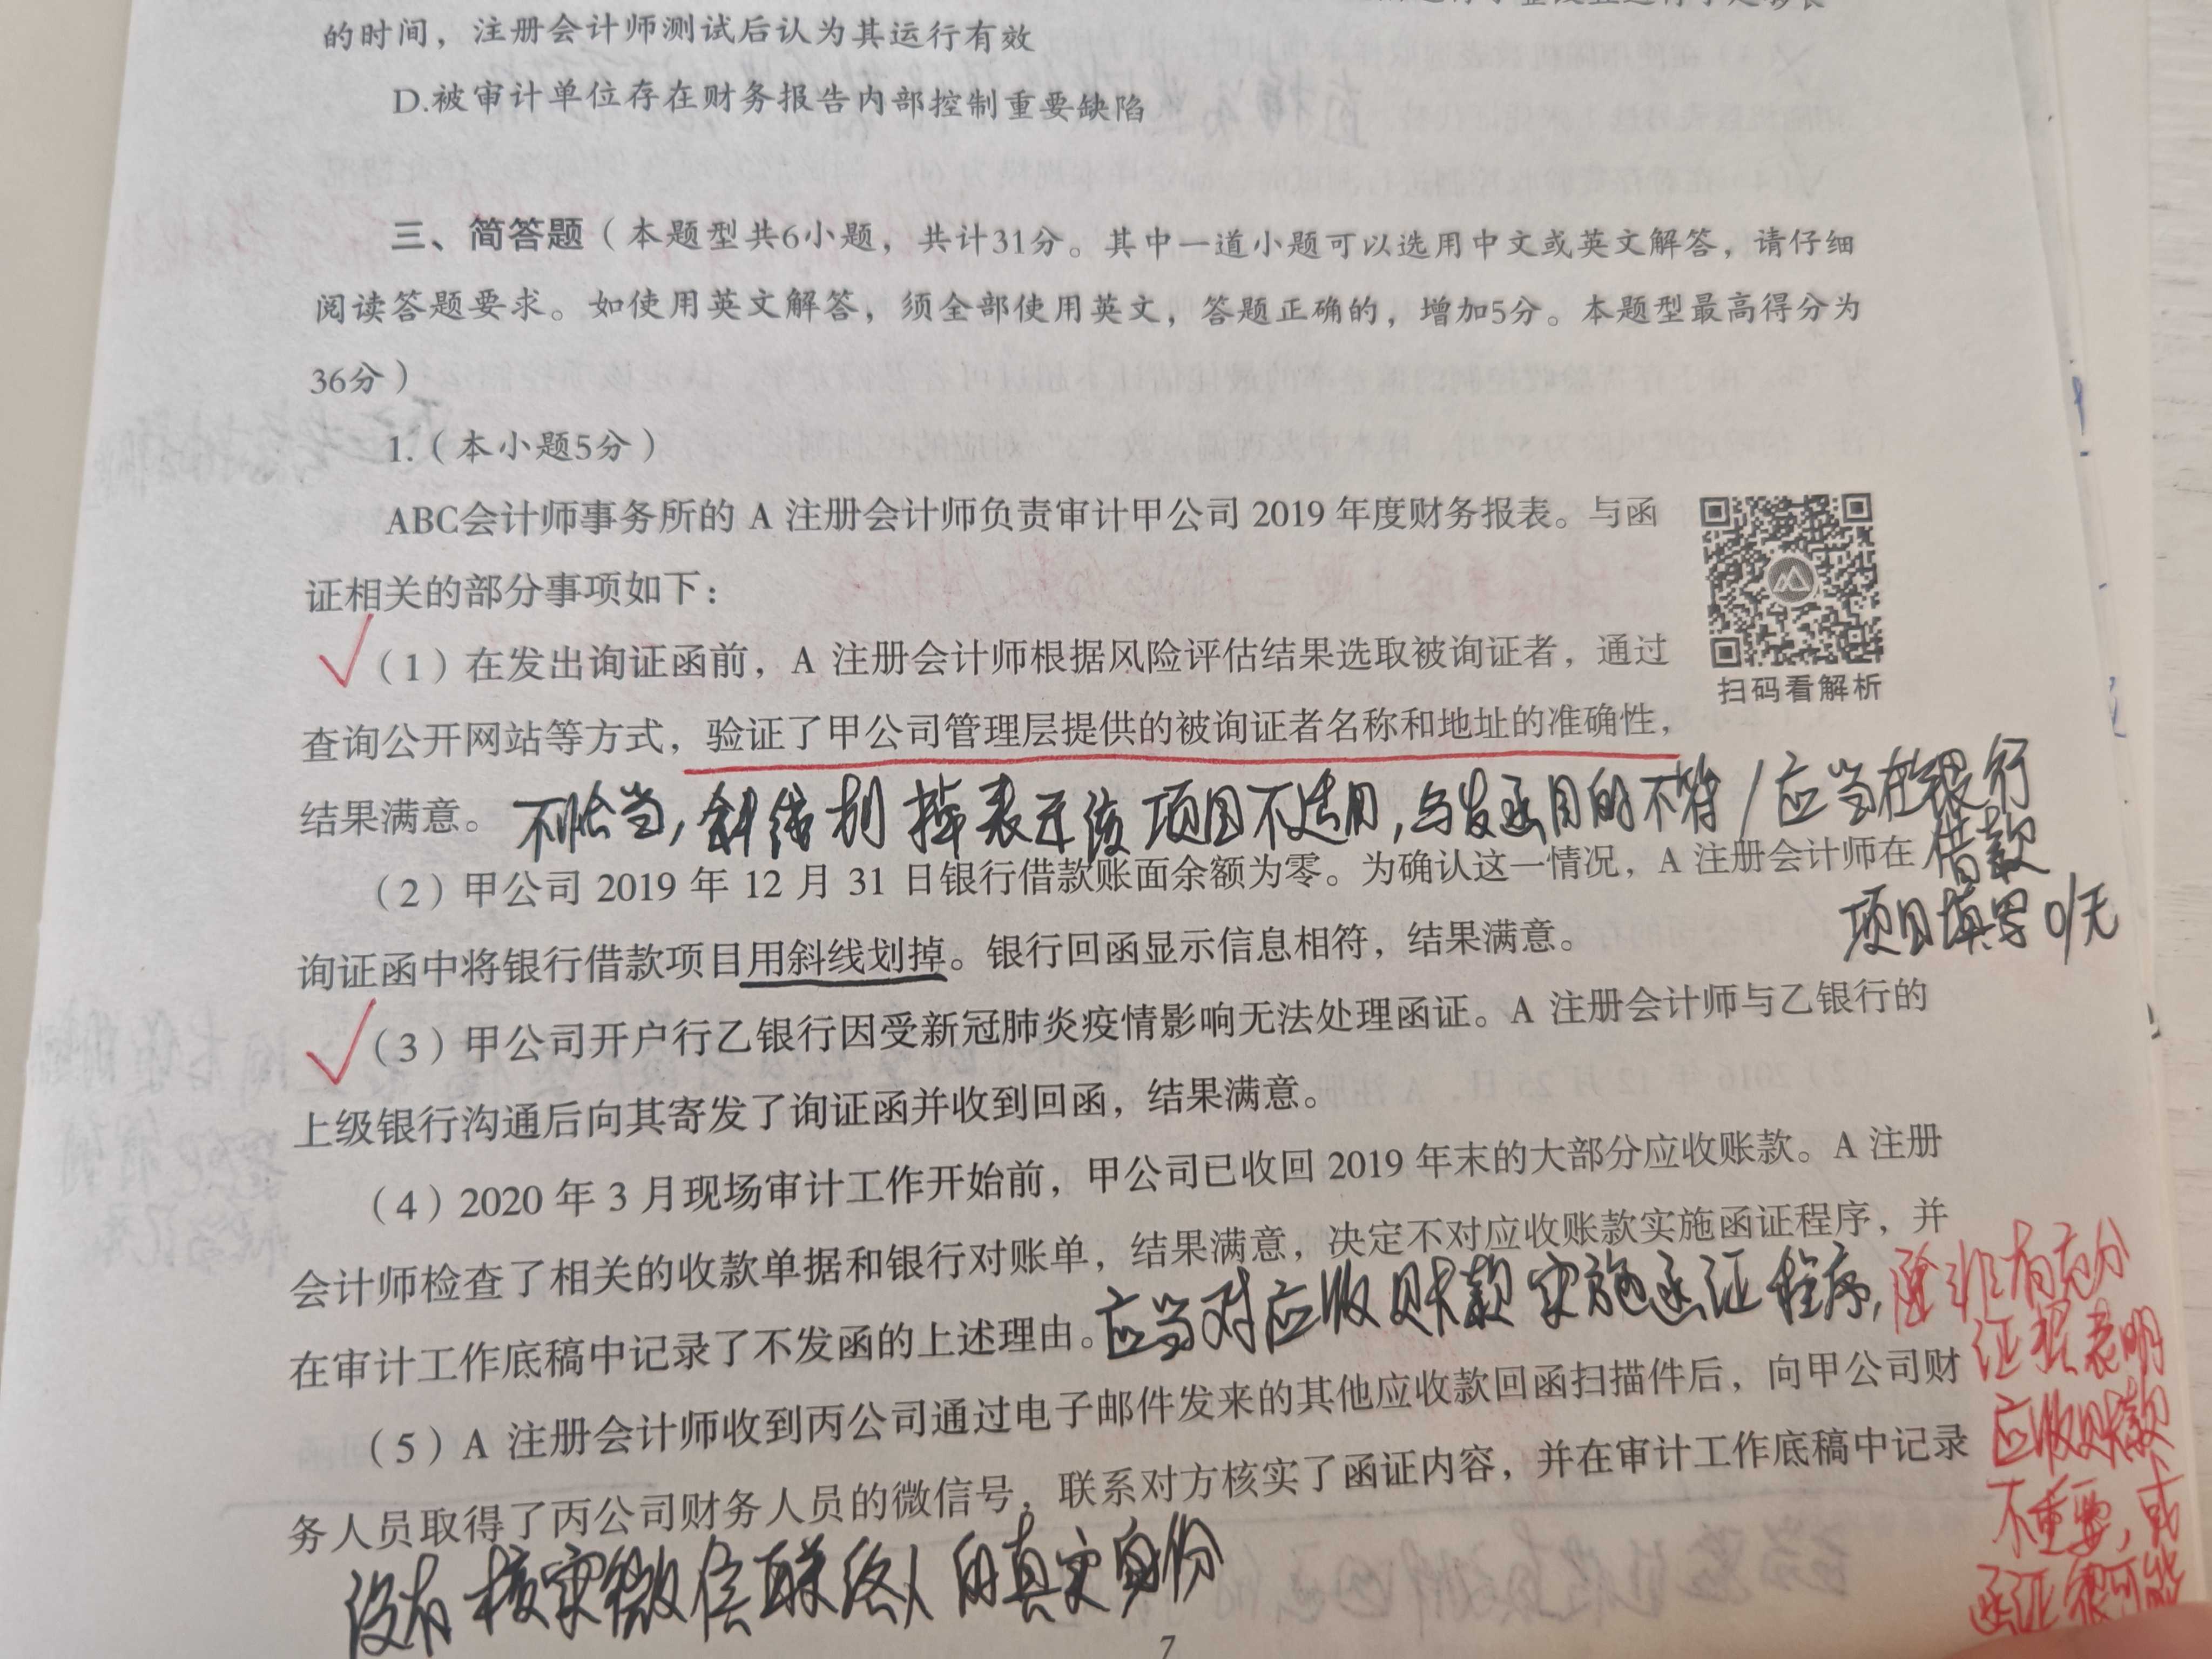 的时间，注册会计师测试后认为其运行有效
D.被审计单位存在财务报告内部控制重要缺陷
三、简答题（本题型共6小题，共计31分。其中一道小题可以选用中文或英文解答，请仔细
阅读答题要求。如使用英文解答，须全部使用英文，答题正确的，增加5分。本题型最高得分为
36分）
1.（本小题5分）
ABC会计师事务所的 A 注册会计师负责审计甲公司 2019 年度财务报表。与函
证相关的部分事项如下：
（1）在发出询证函前，A 注册会计师根据风险评估结果选取被询证者，通过
查询公开网站等方式，验证了甲公司管理层提供的被询证者名称和地址的准确性，
结果满意。
扫码看解析
不恰当，斜线划掉表示该项目不适用，与发函目的不符/应当在银行
借款
项目填写0/无
（2）甲公司 2019 年 12 月 31 日银行借款账面余额为零。为确认这一情况，A 注册会计师在
询证函中将银行借款项目用斜线划掉。银行回函显示信息相符，结果满意。
（3）甲公司开户行乙银行因受新冠肺炎疫情影响无法处理函证。A 注册会计师与乙银行的
上级银行沟通后向其寄发了询证函并收到回函，结果满意。
（4）2020 年 3 月现场审计工作开始前，甲公司已收回 2019 年末的大部分应收账款。A 注册
会计师检查了相关的收款单据和银行对账单，结果满意，决定不对应收账款实施函证程序，并
在审计工作底稿中记录了不发函的上述理由。
应当对应收账款实施函证程序，除非有充分
证据表明
应收账款
不重要，或
函证很可能
（5）A 注册会计师收到丙公司通过电子邮件发来的其他应收款回函扫描件后，向甲公司财
务人员取得了丙公司财务人员的微信号，联系对方核实了函证内容，并在审计工作底稿中记录
没有核实微信联络人的真实身份
7